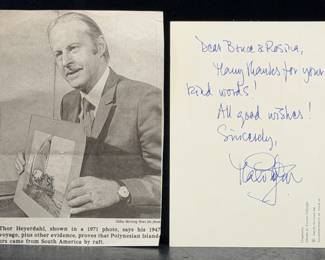 Thor Heyerdahl, shown in a 1971 photo, says his 1947
voyage, plus other evidence, proves that Polynesian Island-
ers came from South America by raft.
Dear Bruce & Rosina,
Many thanks for your
kind words!
All good wishes!
Sincerely,